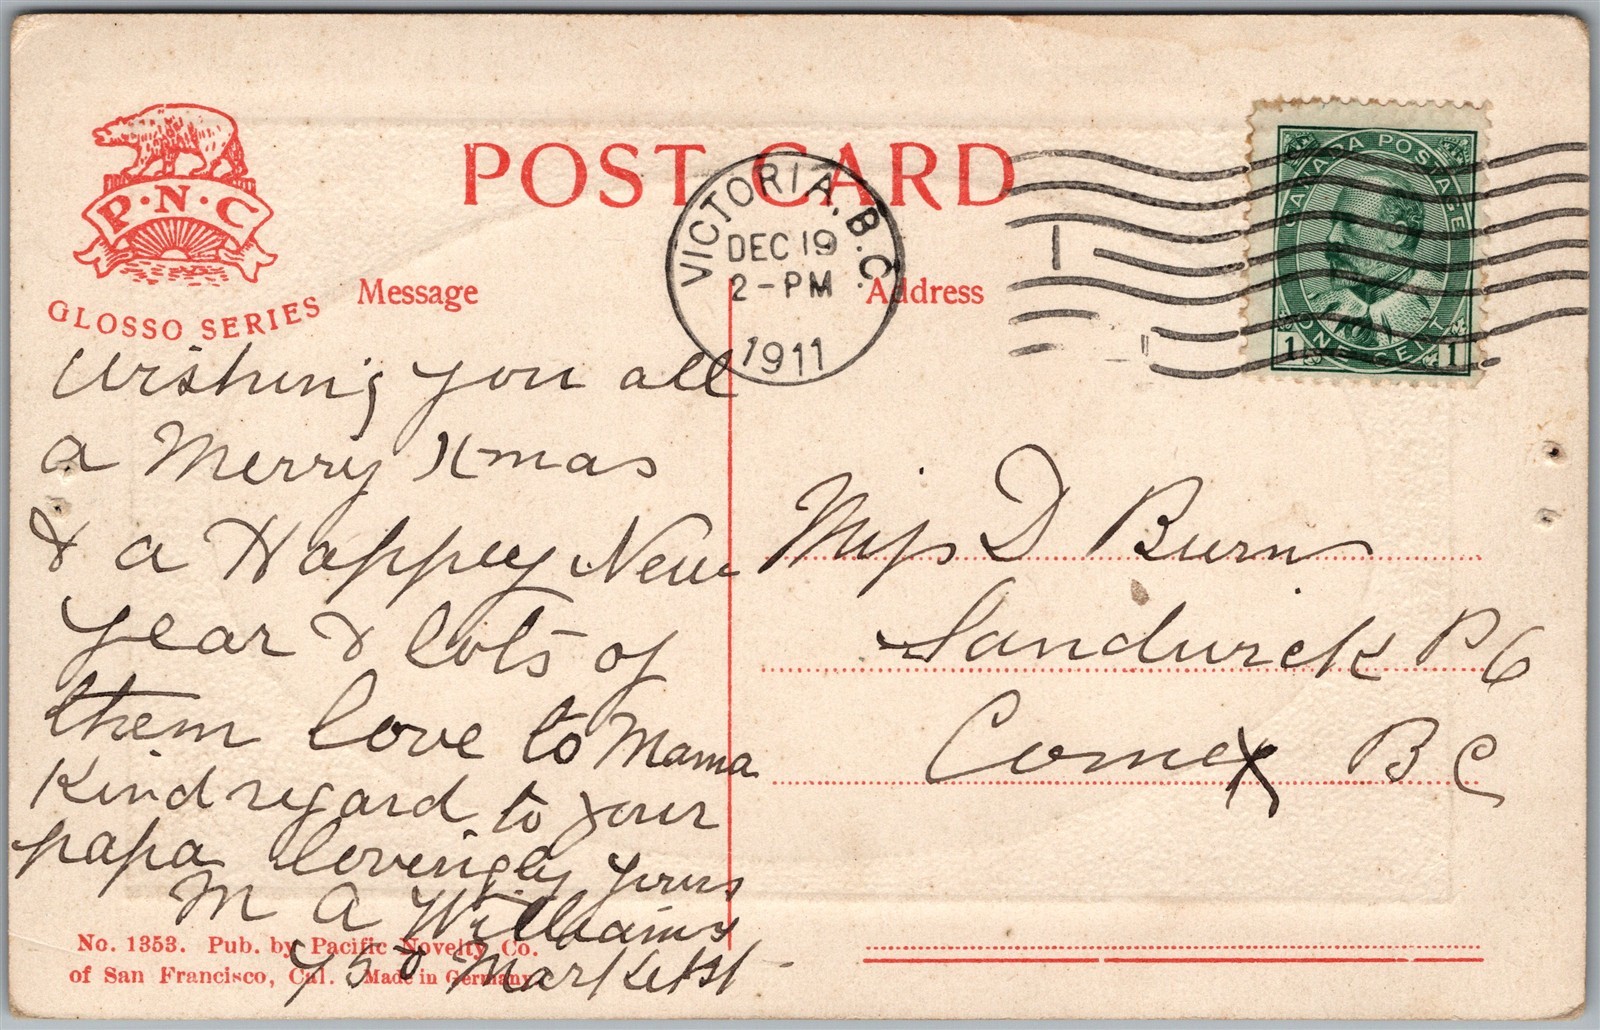 POST CARD
P·N·C
GLOSSO SERIES
Message
Address
VICTORIA, B.C.
DEC 19
2-PM
1911
CANADA POSTAGE
ONE CENT
1 1
Wishing you all
a Merry Xmas
& a Happy New
year & lots of
them love to Mama
Kind regard to your
papa lovingly yours
M A Williams
750 Market St
Miss D Burns
Sandwick P O
Comox B C
No. 1353. Pub. by Pacific Novelty Co.
of San Francisco, Cal. Made in Germany